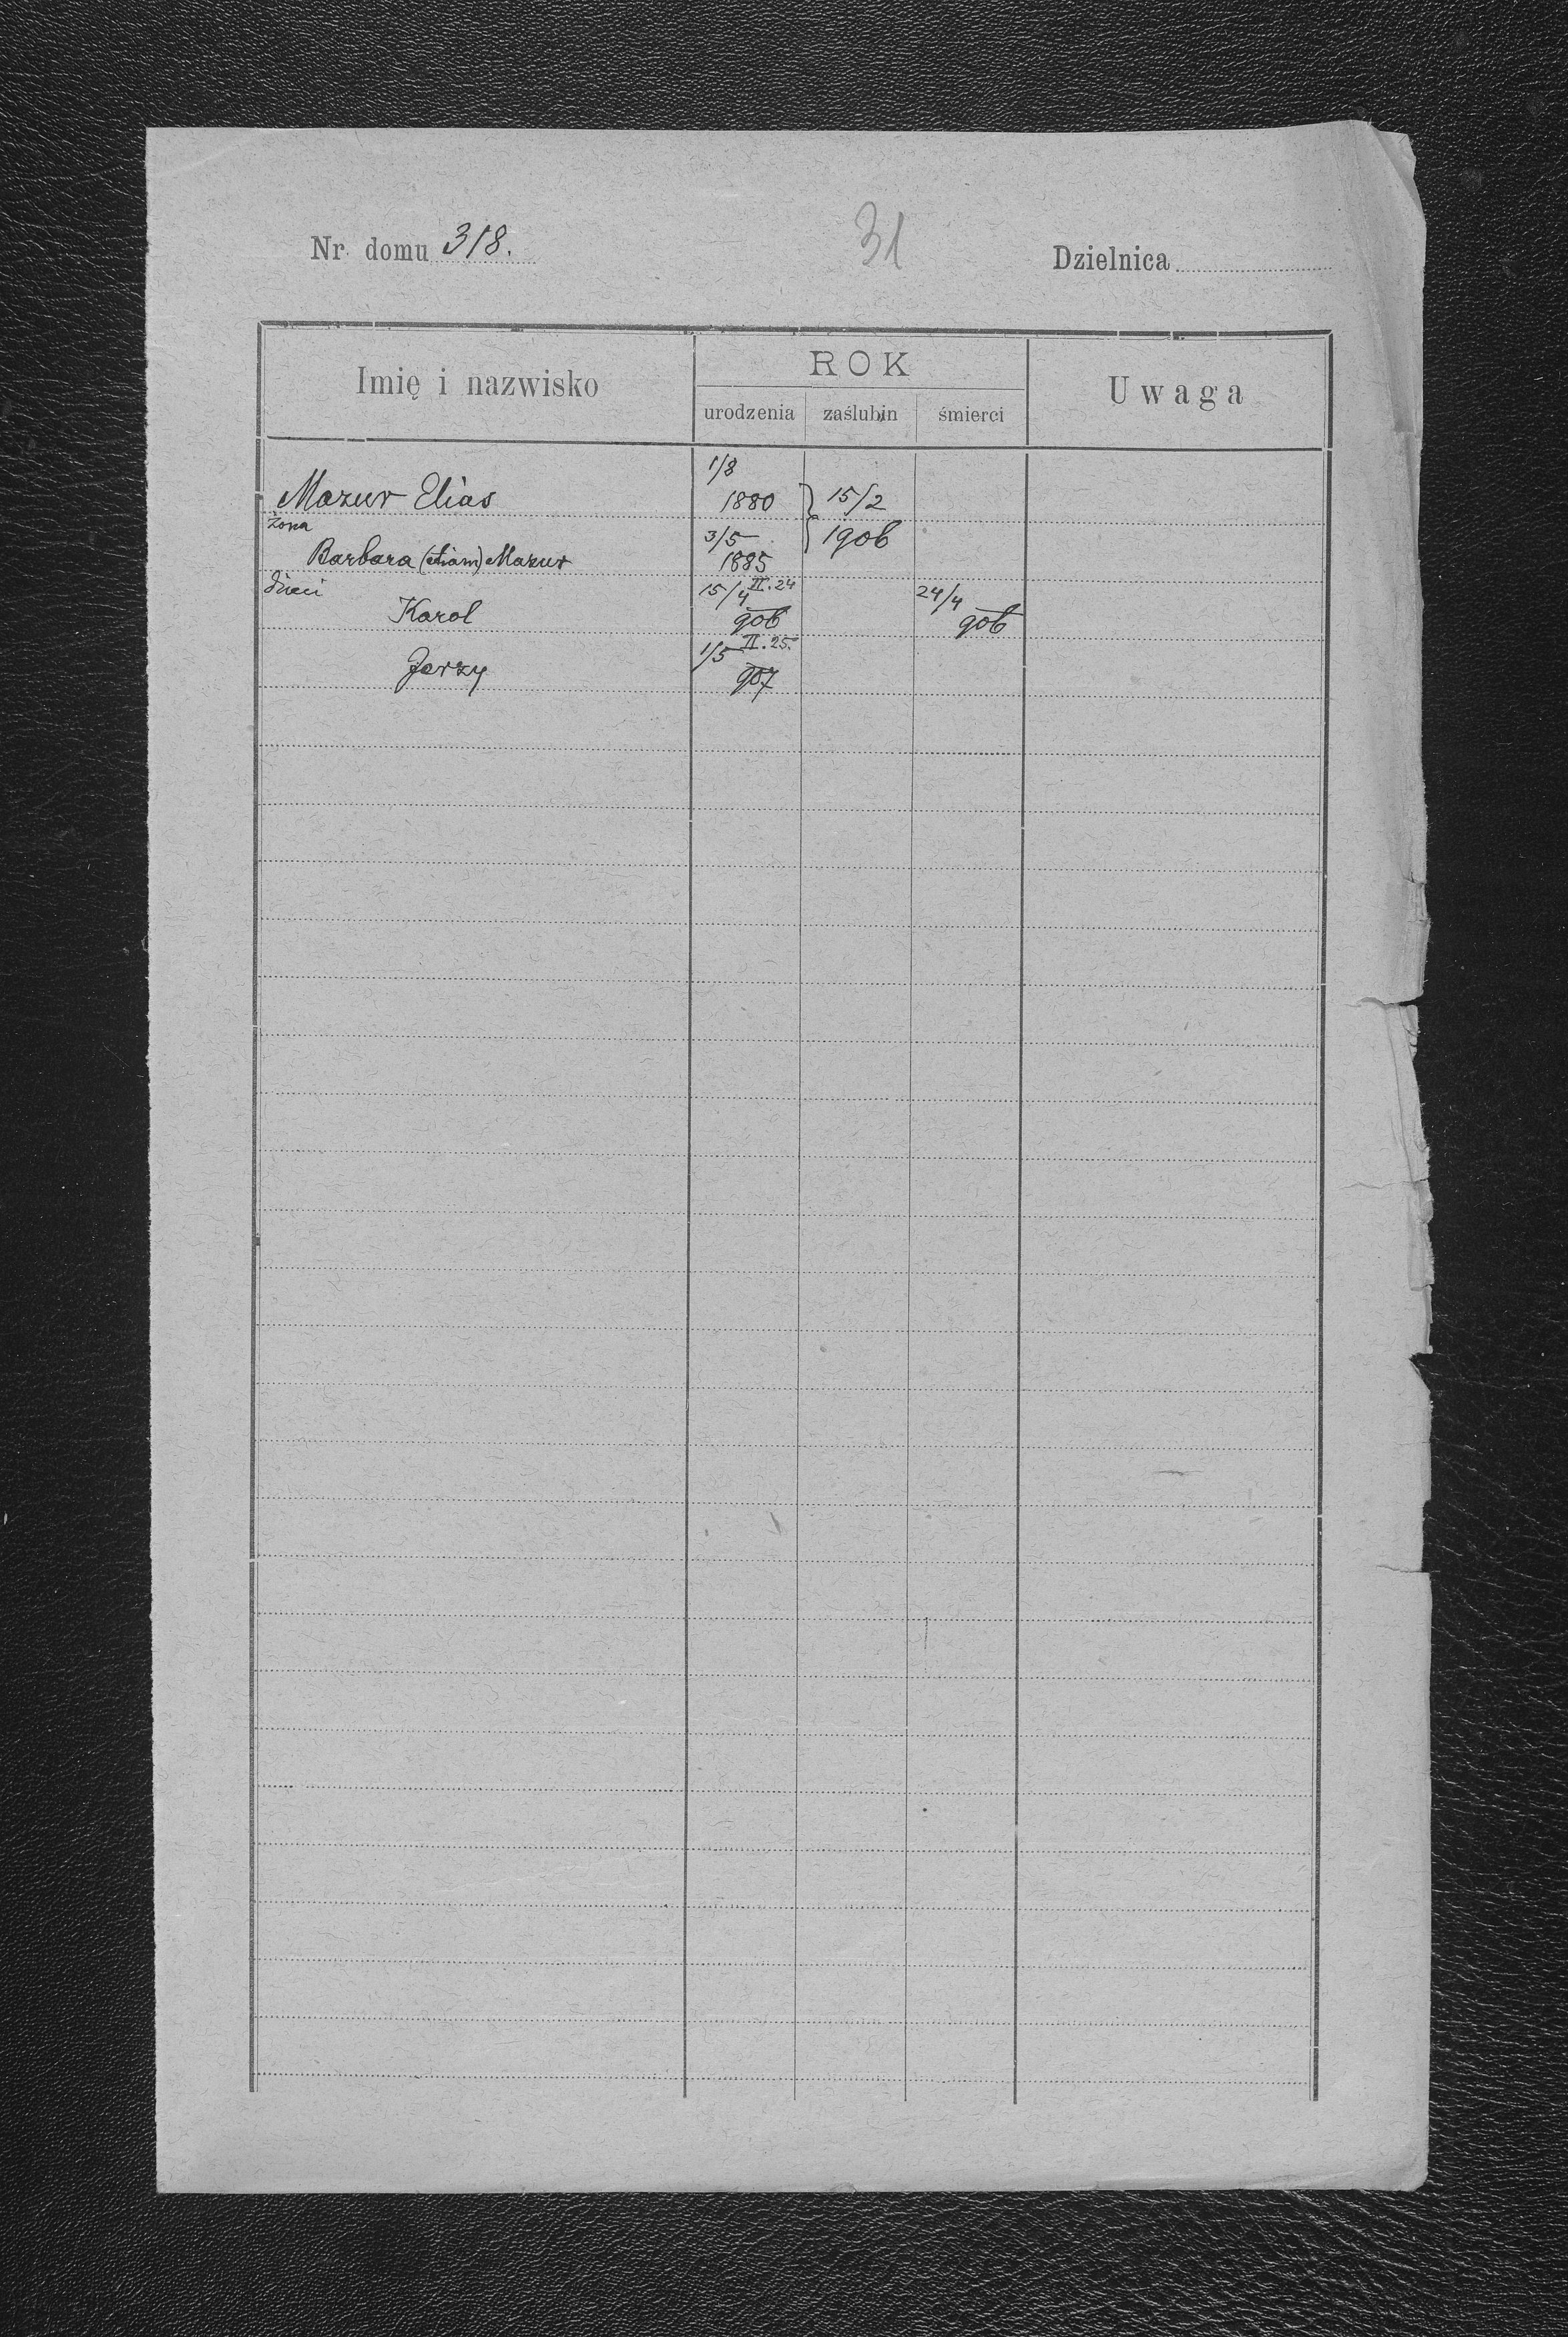 Nr. domu 318.
31
Dzielnica
Imię i nazwisko
ROK
urodzenia zaślubin śmierci
Uwaga
Mazur Elias 1/8 1880 15/2 1906
żona
Barbara (etiam) Mazur 3/5 1885
dzieci
Karol 15/4 II.24 906 24/4 906
Jerzy 1/5 II.25. 907